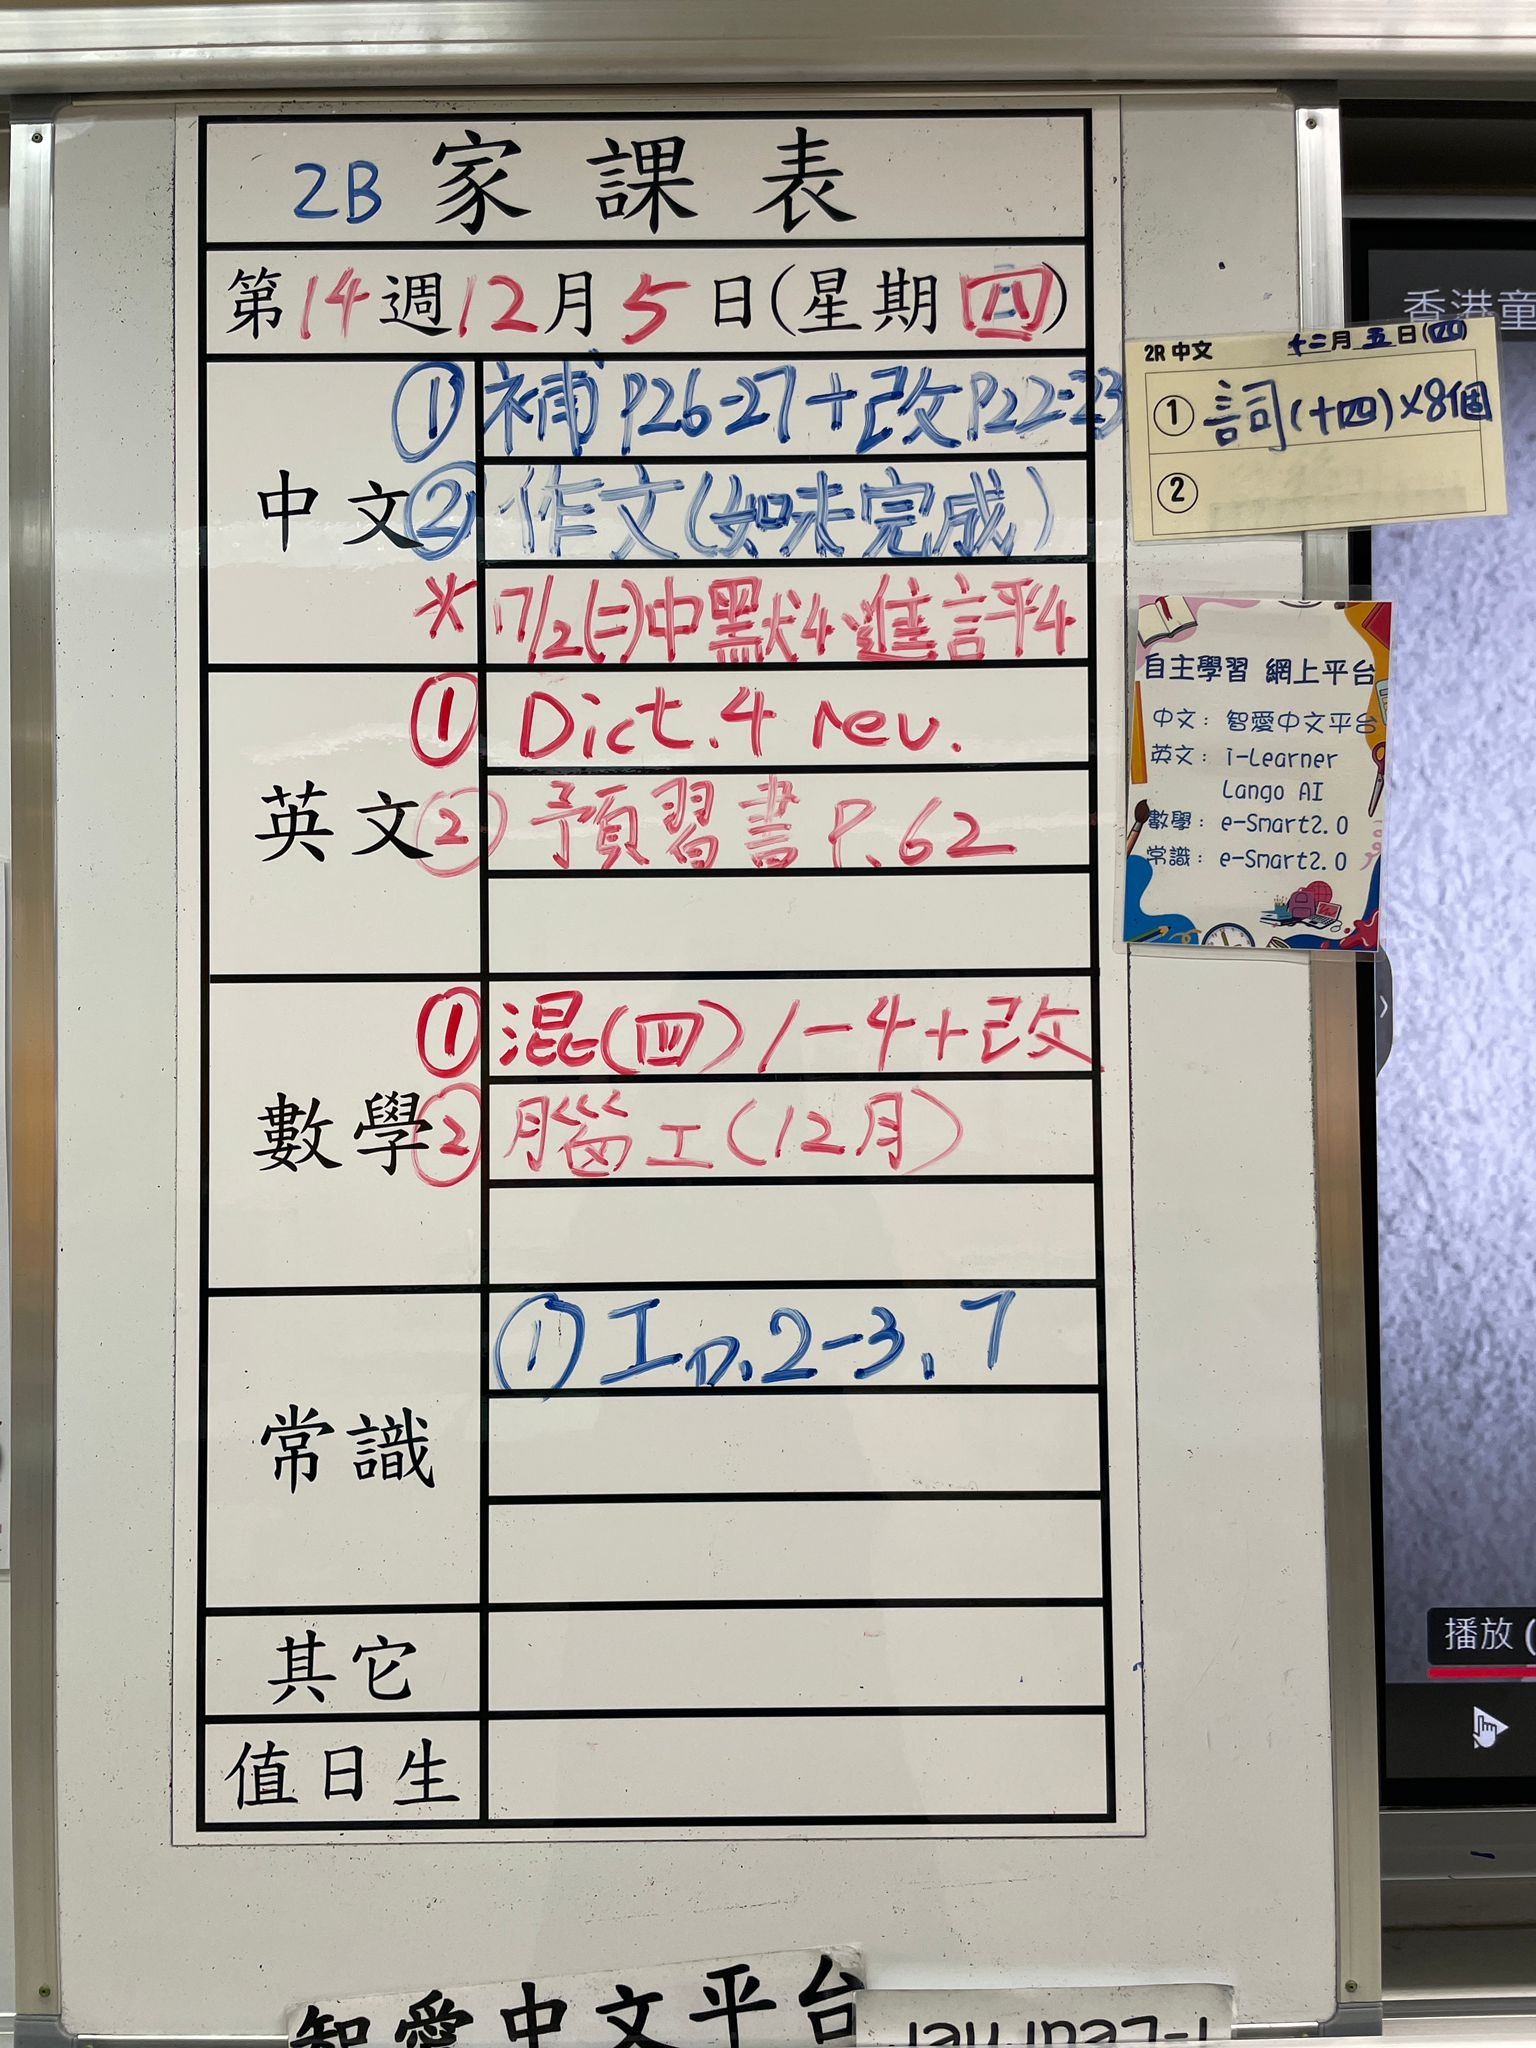 2B 家課表
第14週12月5日(星期四)
中文
① 補P26-27+改P22-23
② 作文(如未完成)
* 17/12(二)中默4、進評4
英文
① Dict.4 rev.
② 預習書 P.62
數學
① 混(四)1-4+改
② 腦工(12月)
常識
① 工p.2-3,7
其它
值日生
2R 中文 十二月五日(四)
① 詞(十四)×8個
②
自主學習 網上平台
中文: 智愛中文平台
英文: i-Learner
Lango AI
數學: e-Smart2.0
常識: e-Smart2.0
香港童
播放 (
智愛中文平台
i-Learner